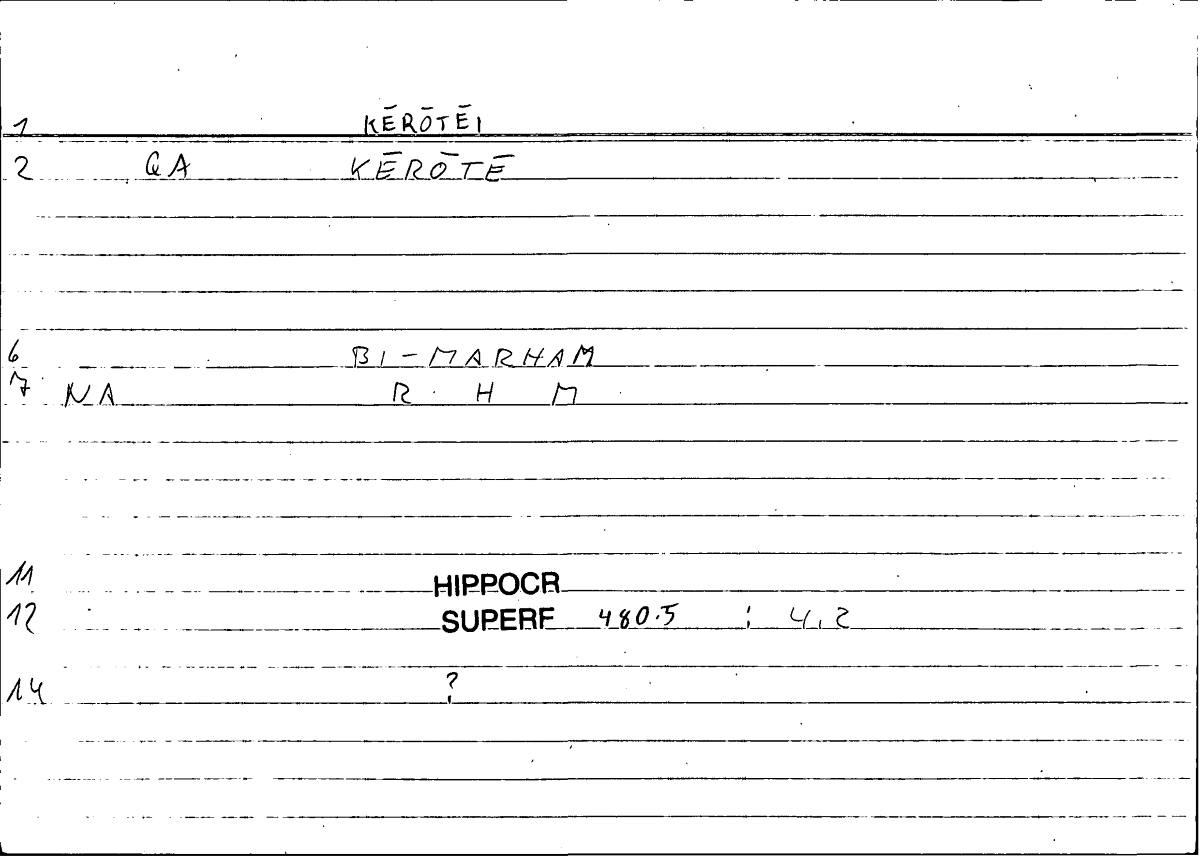 1 KĒRŌTĒI
2 GA KĒRŌTĒ
6 BI-MARHAM
7 NA R H M
11 HIPPOCR
12 SUPERF 480.5 : 4.2
14 ?